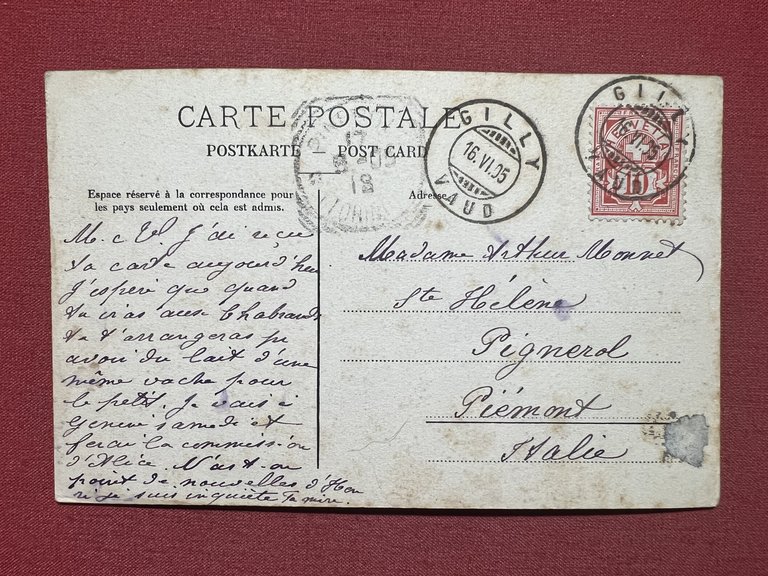 CARTE POSTALE
POSTKARTE — POST CARD
Espace réservé à la correspondance pour
les pays seulement où cela est admis.
Adresse
GILLY
16.VI.05
VAUD
GILLY
VI.05
VAUD
HELVETIA
17
05
Madame Arthur Monnet
Ste Hélène
Pignerol
Piémont
Italie
M. c V. J'ai reçu
ta carte aujourd'hui
J'espère que quand
tu iras aux Chabrands
tu t'arrangeras pr
avoir du lait d'une
même vache pour
le petit. Je vais à
Genève samedi et
ferai la commission
d'Alice. N'as-t-on
point de nouvelles d'Hen
ri je suis inquiète Ta mère.